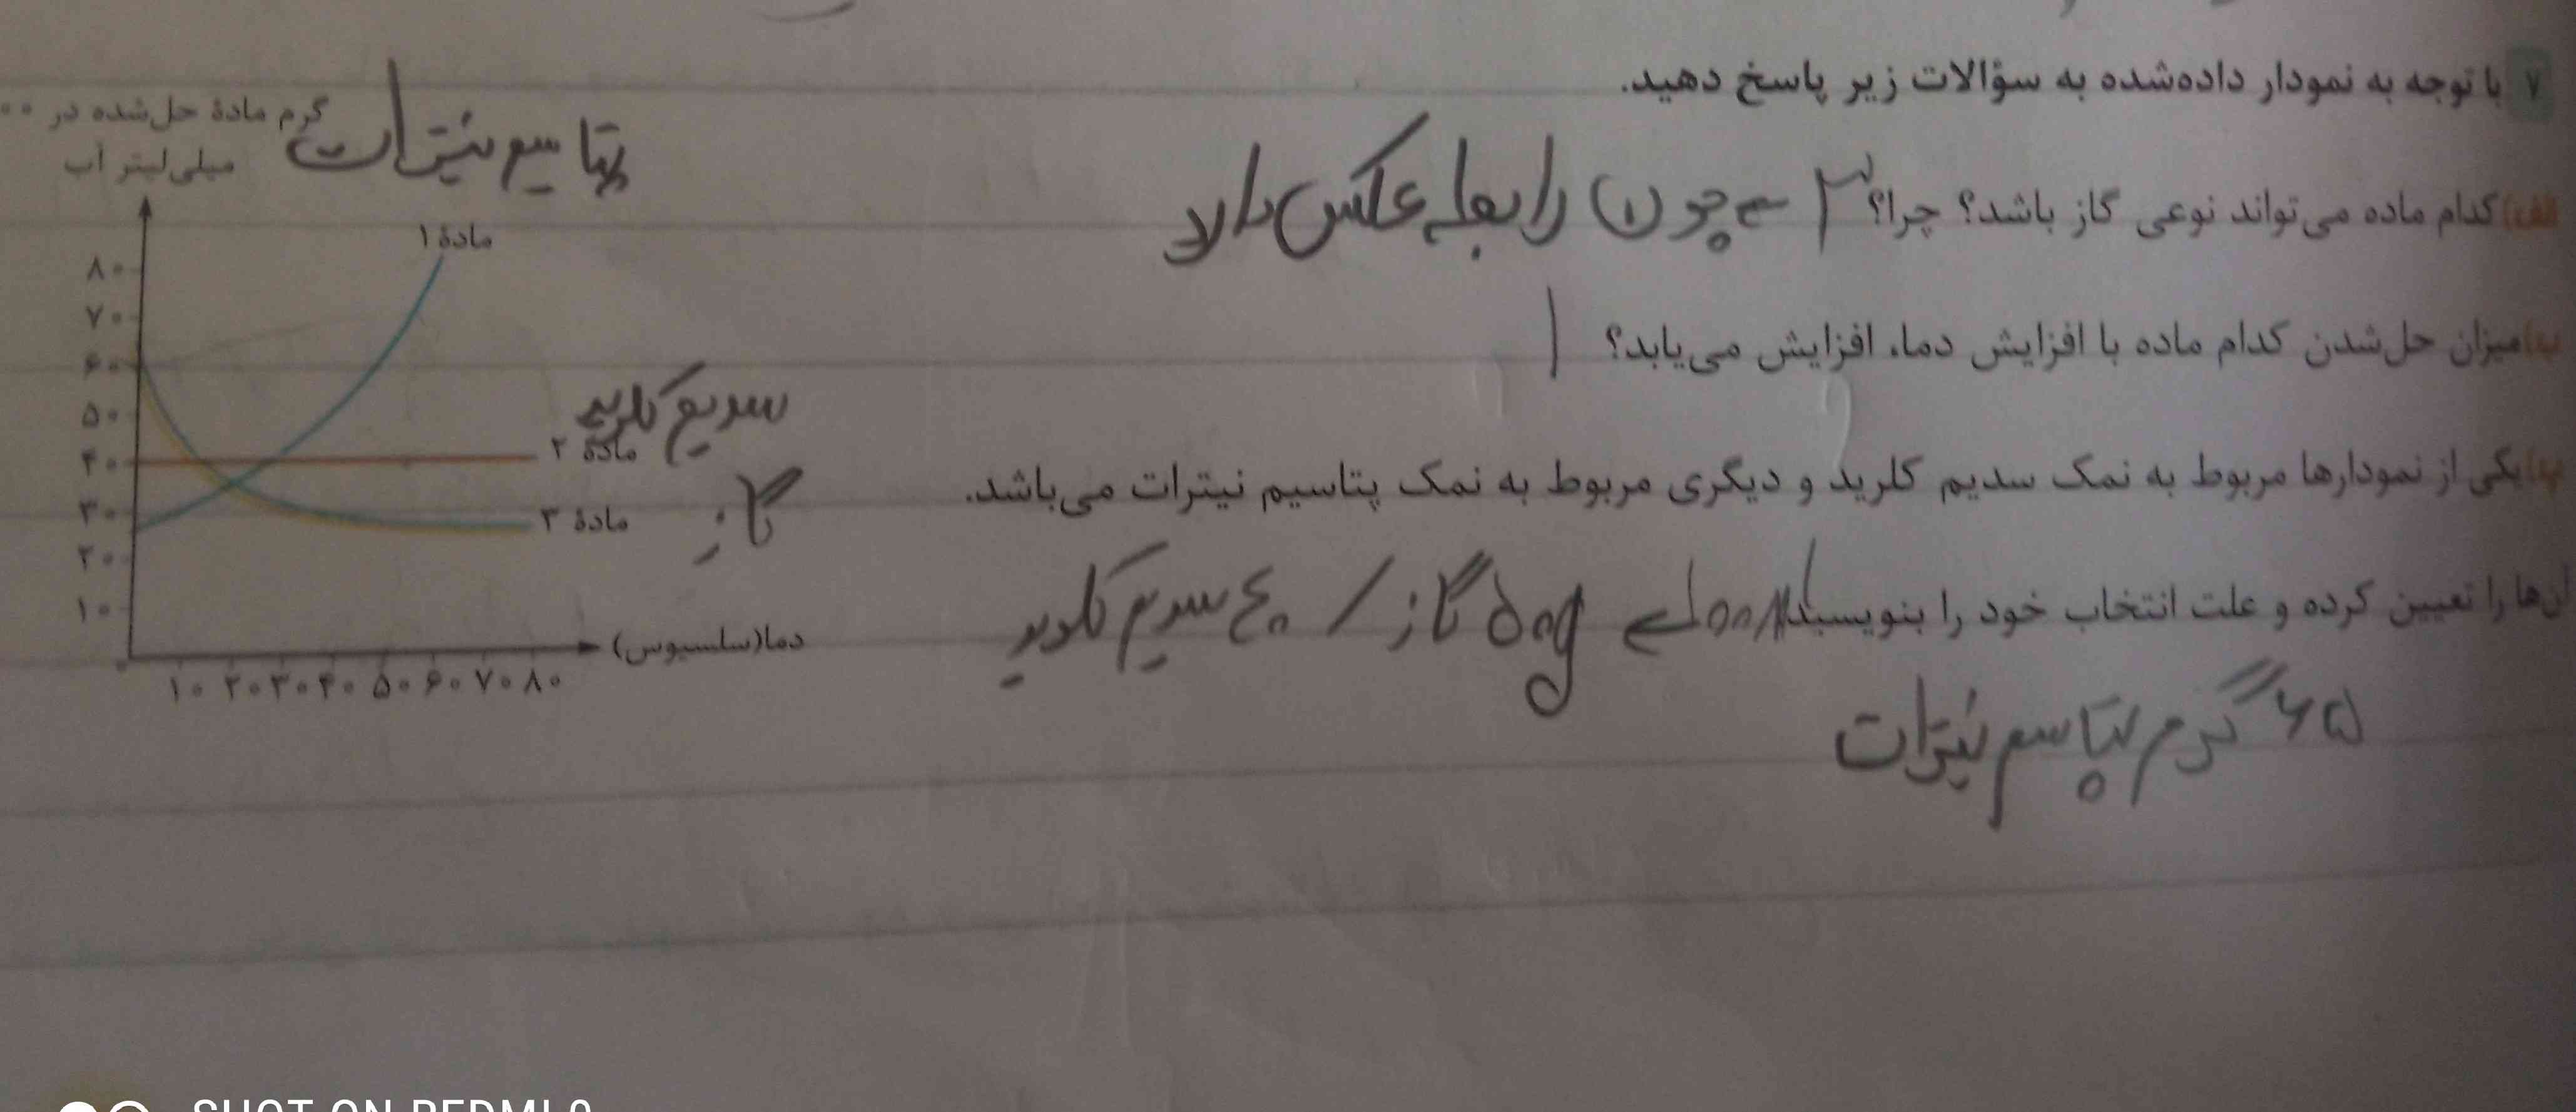 ۷ با توجه به نمودار داده‌شده به سؤالات زیر پاسخ دهید.
الف) کدام ماده می‌تواند نوعی گاز باشد؟ چرا؟ ۳ چون رابطه عکس دارد
ب) میزان حل‌شدن کدام ماده با افزایش دما، افزایش می‌یابد؟ ۱
پ) یکی از نمودارها مربوط به نمک سدیم کلرید و دیگری مربوط به نمک پتاسیم نیترات می‌باشد.
آن‌ها را تعیین کرده و علت انتخاب خود را بنویسید.
۵۰g گاز / ۴۰ سدیم کلرید
۶۵ گرم پتاسیم نیترات
گرم مادهٔ حل‌شده در ۰۰
میلی‌لیتر آب
پتاسیم نیترات
مادهٔ ۱
۸۰
۷۰
۶۰
۵۰
۴۰
۳۰
۲۰
۱۰
سدیم کلرید
مادهٔ ۲
مادهٔ ۳
گاز
دما(سلسیوس)
۱۰ ۲۰ ۳۰ ۴۰ ۵۰ ۶۰ ۷۰ ۸۰